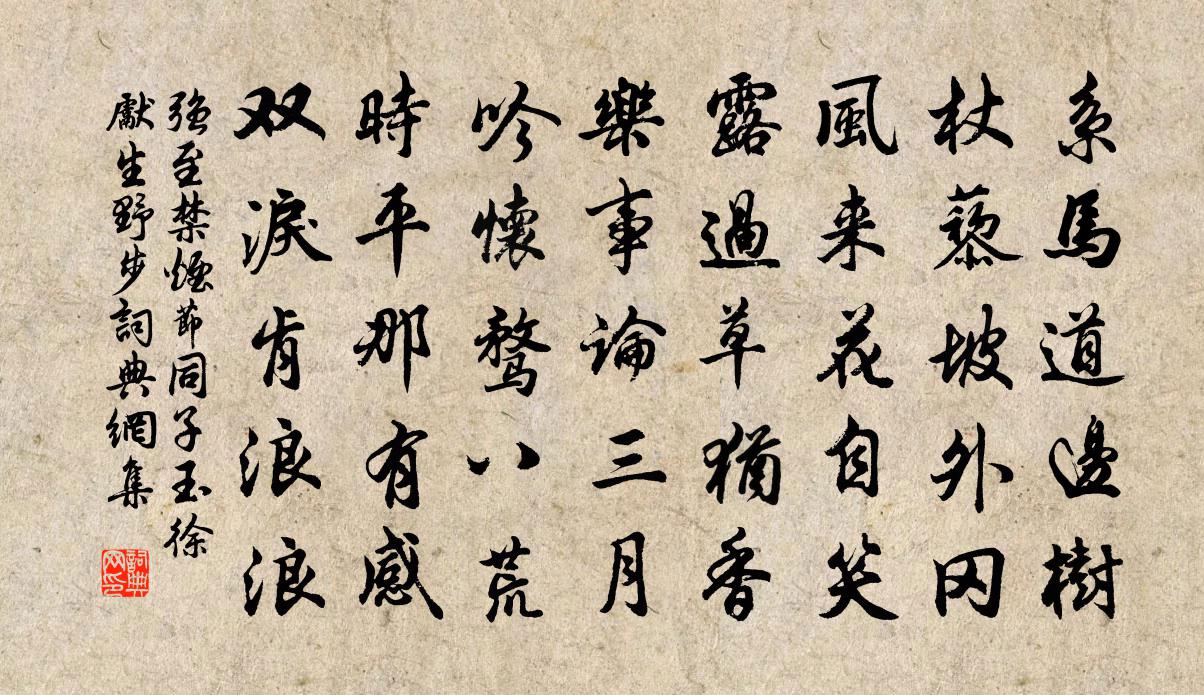 系馬道邊樹
杖藜坡外冈
風来花自笑
露過草猶香
樂事論三月
吟懷騖八荒
時平那有感
双淚肯浪浪
强至禁煙節同子玉徐
獻生野步詞典網集
詞典网印